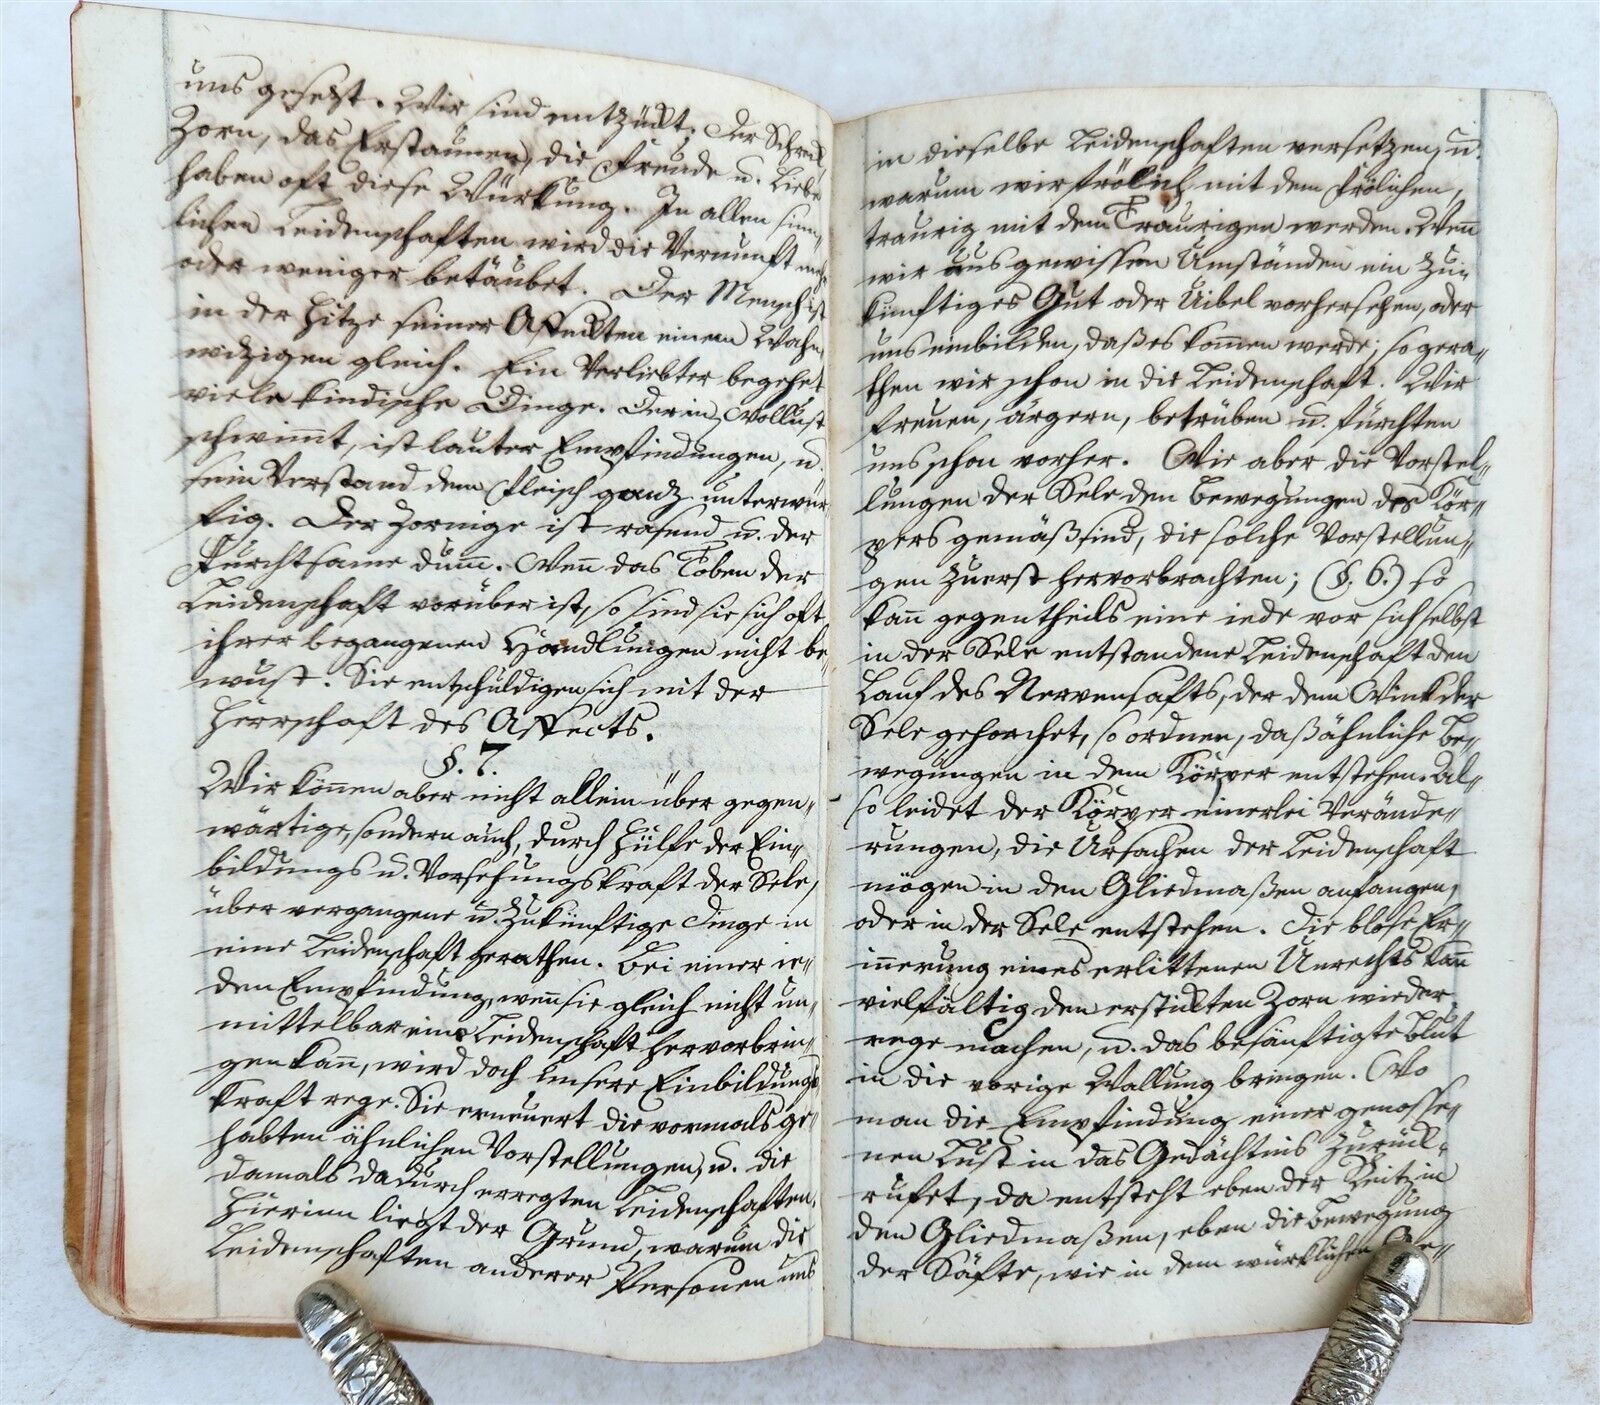 uns gesetzt. Wir sind entzükt. Der Schrek
Zorn, das Erstaunen, die Freude u. Liebe
haben oft diese Würkung. In allen sinn„
lichen Leidenschaften wird die Vernunft mehr
oder weniger betäubet. Der Mensch ist
in der Hitze seiner Affekten einem Wahn„
witzigen gleich. Ein Verliebter begehet
viele kindische Dinge. Der in Wollust
schwim̄t, ist lauter Empfindungen, u.
sein Verstand dem Fleisch ganz unterwür
fig. Der Zornige ist rasend u. der
Furchtsame dum̄. Wen̄ das Toben der
Leidenschaft vorüber ist, so sind sie sich oft
ihrer begangenen Handlungen nicht be„
wust. Sie entschuldigen sich mit der
Herrschaft des Affects.
§. 7.
Wir können aber nicht allein über gegen„
wärtige, sondern auch, durch Hülfe der Ein„
bildungs u. Vorsehungskraft der Sele,
über vergangene u. zukünftige Dinge in
eine Leidenschaft gerathen. Bei einer ie„
den Empfindung, wen̄ sie gleich nicht un„
mittelbar eine Leidenschaft hervorbrin„
gen kan̄, wird doch unsere Einbildungs
kraft rege. Sie erneuert die vormals ge„
habten ähnlichen Vorstellungen, u. die
damals dadurch erregten Leidenschaften.
Hierinn liegt der Grund, warum die
Leidenschaften anderer Personen uns
in dieselbe Leidenschaften versetzen, u.
warum wir frölich mit dem Frölichen,
traurig mit dem Traurigen werden. Wen̄
wir aus gewissen Umständen ein zu„
künftiges Gut oder Uibel vorhersehen, oder
uns einbilden, daß es kom̄en werde; so gera„
then wir schon in die Leidenschaft. Wir
freuen, ärgern, betrüben u. fürchten
uns schon vorher. Wie aber die Vorstel„
lungen der Sele den Bewegungen des Kör„
pers gemäß sind, die solche Vorstellun„
gen zuerst hervorbrachten; (§. 6.) so
kan̄ gegentheils eine iede vor sich selbst
in der Sele entstandene Leidenschaft den
Lauf des Nervensafts, der dem Wink der
Sele gehorchet, so ordnen, daß ähnliche Be„
wegungen in dem Körper entstehen. Al„
so leidet der Körper einerlei Verände„
rungen, die Ursachen der Leidenschaft
mögen in den Gliedmaßen anfangen,
oder in der Sele entstehen. Die blose Er„
in̄erung eines erlittenen Unrechts kan̄
vielfältig den erstikten Zorn wieder
rege machen, u. das besänftigte Blut
in die vorige Wallung bringen. Wo
man die Empfindung einer genosse„
nen Lust in das Gedächtnis zurück„
rufet, da entsteht eben der Reitz in
den Gliedmaßen, eben die Bewegung
der Säfte, wie in dem würklichen Ge„